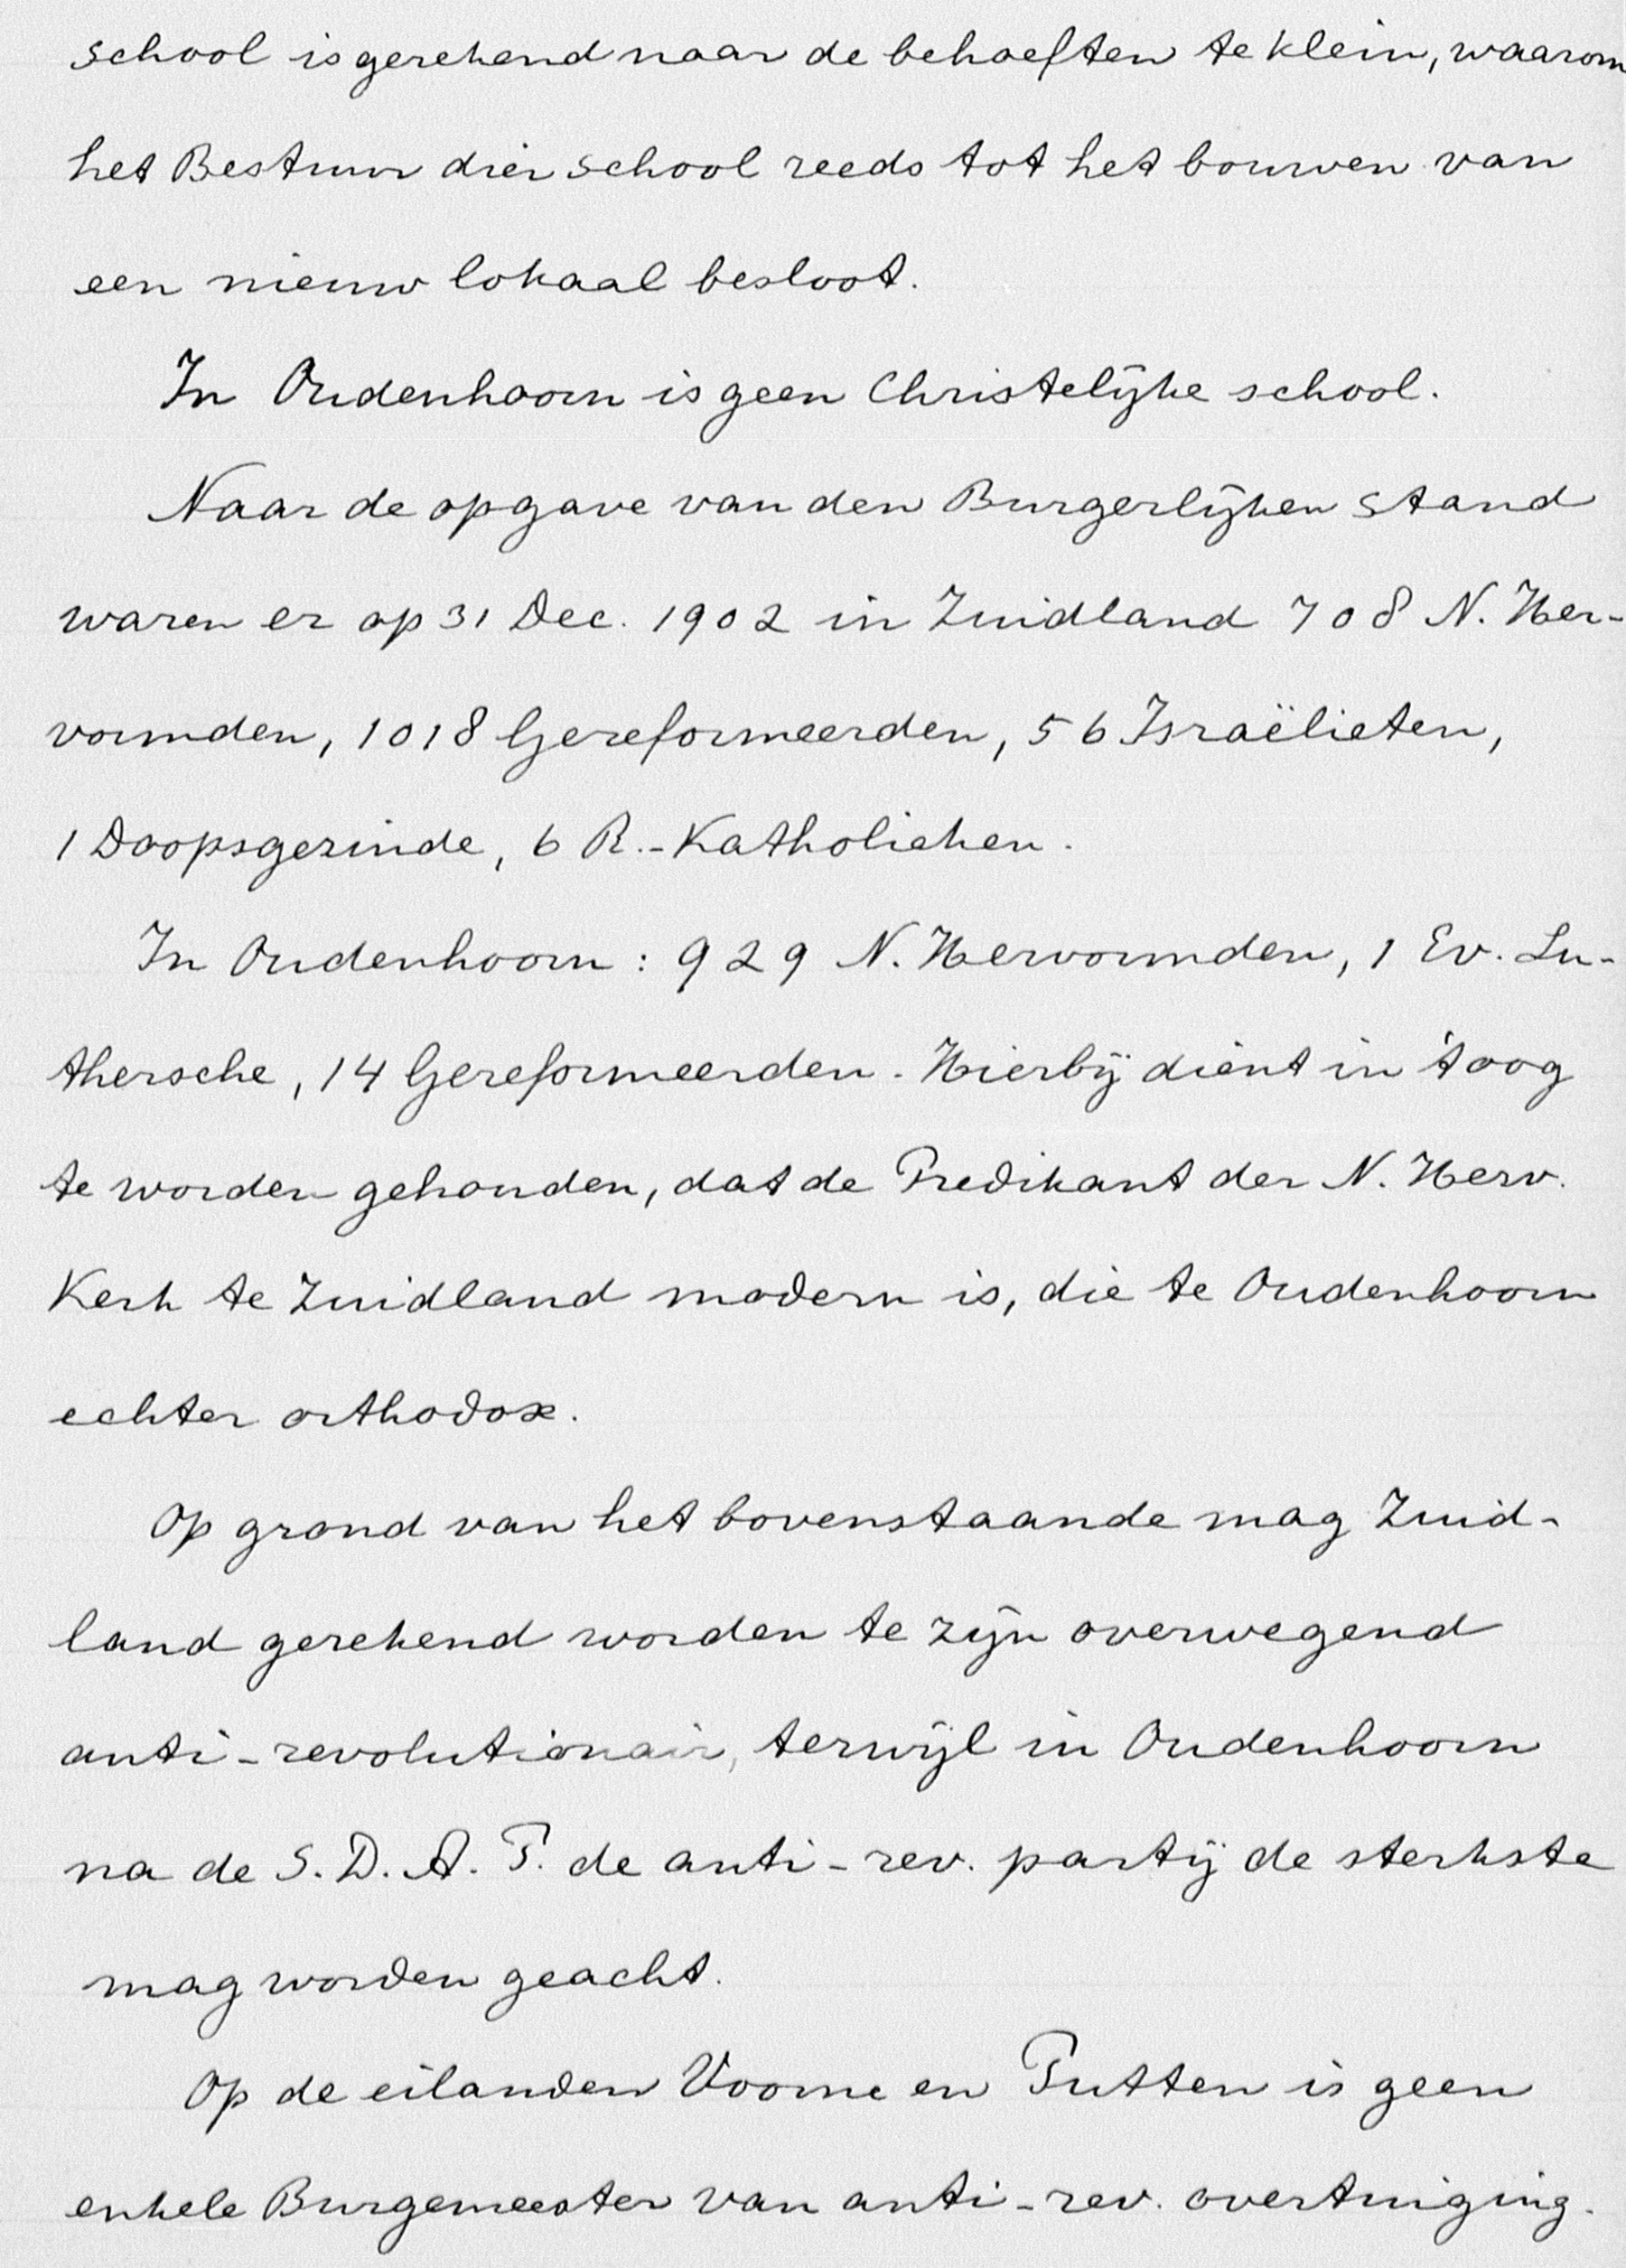 school is gerekend naar de behoeften te klein, waarom
het Bestuur dier school reeds tot het bouwen van
een nieuw lokaal besloot.
In Oudenhoorn is geen Christelijke school.
Naar de opgave van den Burgerlijken Stand
waren er op 31 Dec. 1902 in Zuidland 708 N. Her-
vormden, 1018 Gereformeerden, 56 Israëlieten,
1 Doopsgezinde, 6 R.-Katholieken.
In Oudenhoorn: 929 N. Hervormden, 1 Ev. Lu-
thersche, 14 Gereformeerden. Hierbij dient in 't oog
te worden gehouden, dat de Predikant der N. Herv.
Kerk te Zuidland modern is, die te Oudenhoorn
echter orthodox.
Op grond van het bovenstaande mag Zuid-
land gerekend worden te zijn overwegend
anti-revolutionair, terwijl in Oudenhoorn
na de S. D. A. P. de anti-rev. partij de sterkste
mag worden geacht.
Op de eilanden Voorne en Putten is geen
enkele Burgemeester van anti-rev. overtuiging.